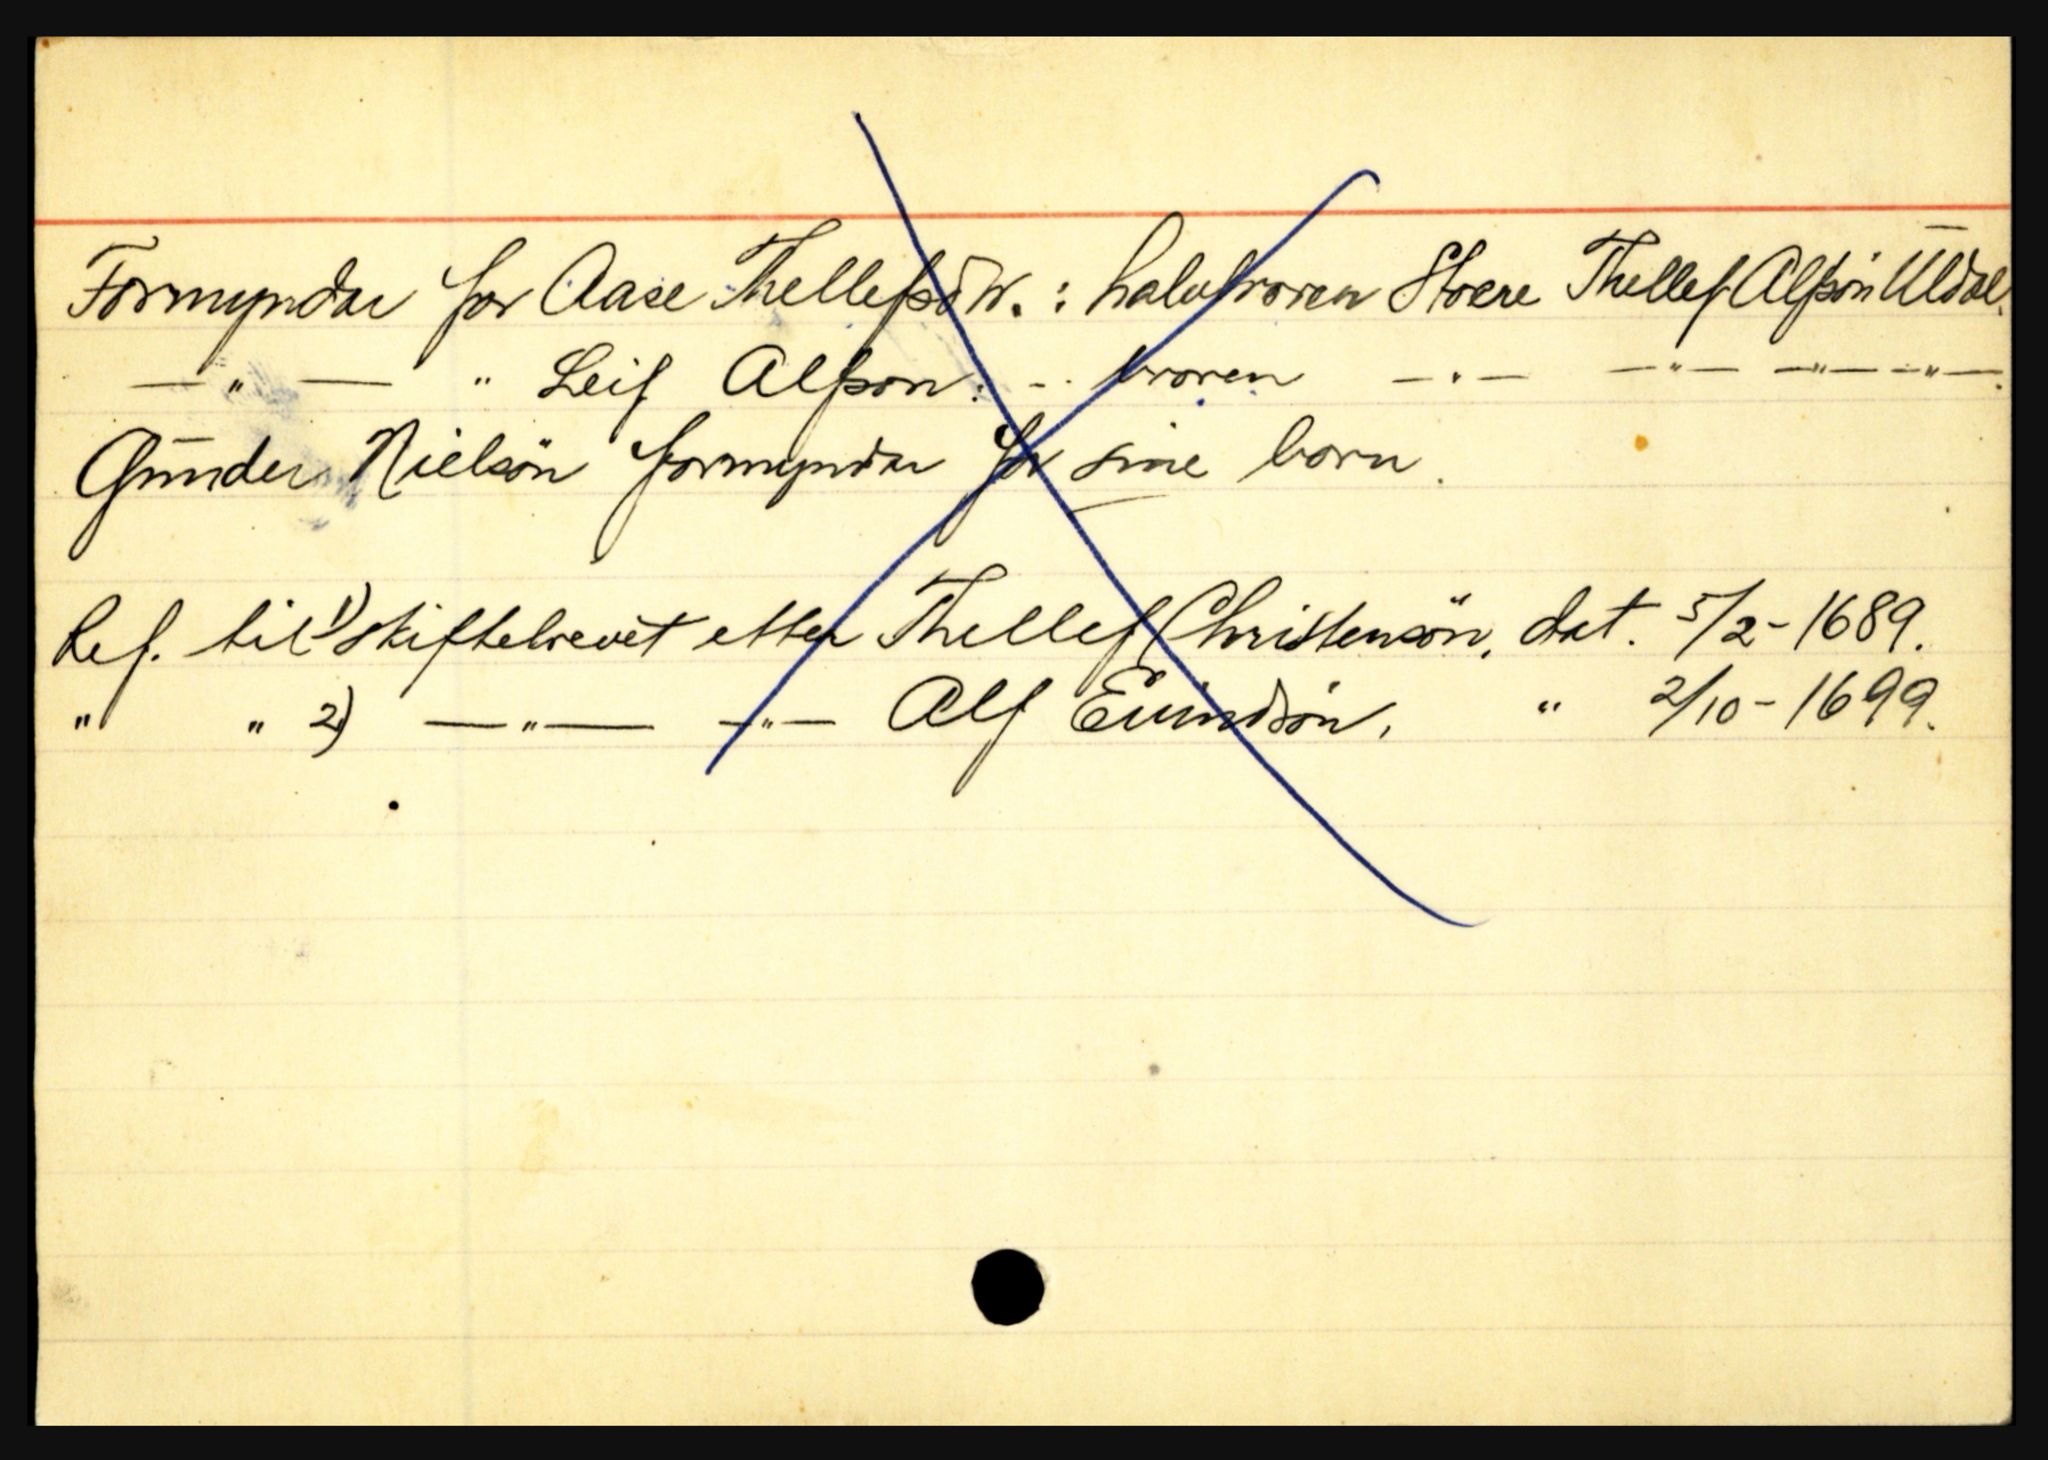 Formyndar for Aase Thellefsdtr. : halvbroren Store Thellef Alfsön Uldal.
—"— " Leif Alfson : -. broren —"— —"— —"— —"—.
Gunder Nielsön formyndar for sine born.
Ref. til 1) skiftebrevet etter Thellef Christensön, dat. 5/2-1689.
" " 2) —"— —"— Alf Evindsön, " 2/10-1699.